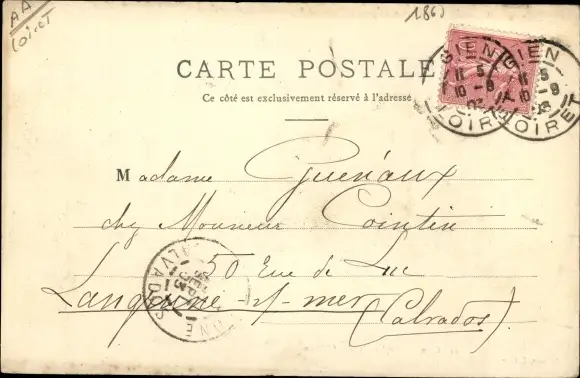 AA
Loiret
186
CARTE POSTALE
Ce côté est exclusivement réservé à l'adresse
GIEN
11 5
10 -9
03
LOIRET
GIEN
11 5
10 -9
03
LOIRET
Madame Guénaux
chez Monsieur Cointin
50 Rue de Luc
Langrune-s/-mer (Calvados)
NE
CALVADOS
SEPT
03